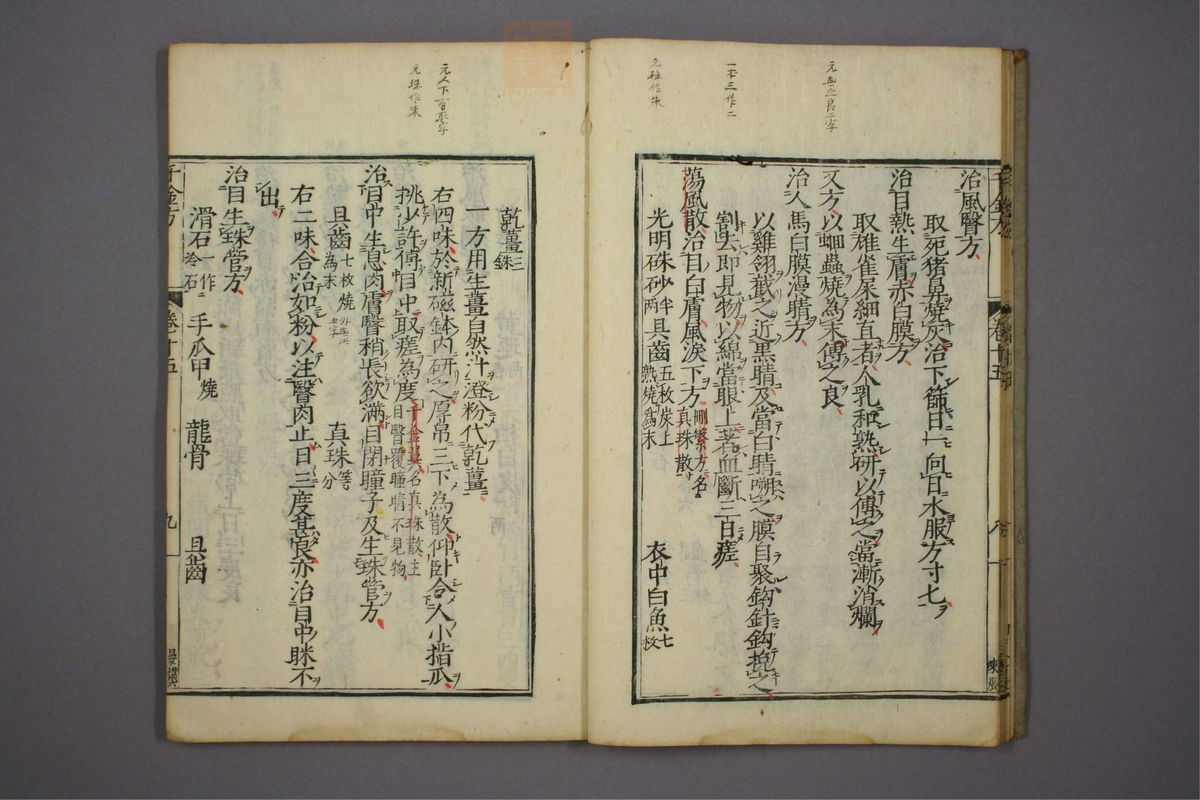 元無之良二字
一本三作二
元硃作朱
治風瞖方
取死猪鼻燒灰治下篩日一向日水服方寸匕
治目熱生膚赤白膜方
取雄雀屎細直者人乳和熟研以傅之當漸消爛
又方以蛔蟲燒為末傅之良
治人馬白膜漫睛方
以雞翎截之近黑睛及當白睛嘲之膜自聚鉤針鉤挽之
割去即見物以綿當眼上著血斷三日瘥
蕩風散治目白膚風淚下方刪繁方名真珠散
光明硃砂半兩 貝齒五枚炭上熟燒為末 衣中白魚七枚
乾薑三銖
元人下有爪字
元珠作朱
一方用生薑自然汁澄粉代乾薑
右四味於新磁鉢內研之厚帛三下為散仰臥令人小指爪
挑少許傅目中取瘥為度千金翼名真珠散主目瞖覆瞳睛不見物
治目中生息肉膚瞖稍長欲滿目閉瞳子及生珠管方
貝齒七枚燒為末 真珠等分
右二味合治如粉以注瞖肉止日三度甚良亦治目中眯不
出
治目生珠管方
滑石一作冷石 手爪甲燒 龍骨 貝齒
千金方 卷十五 九